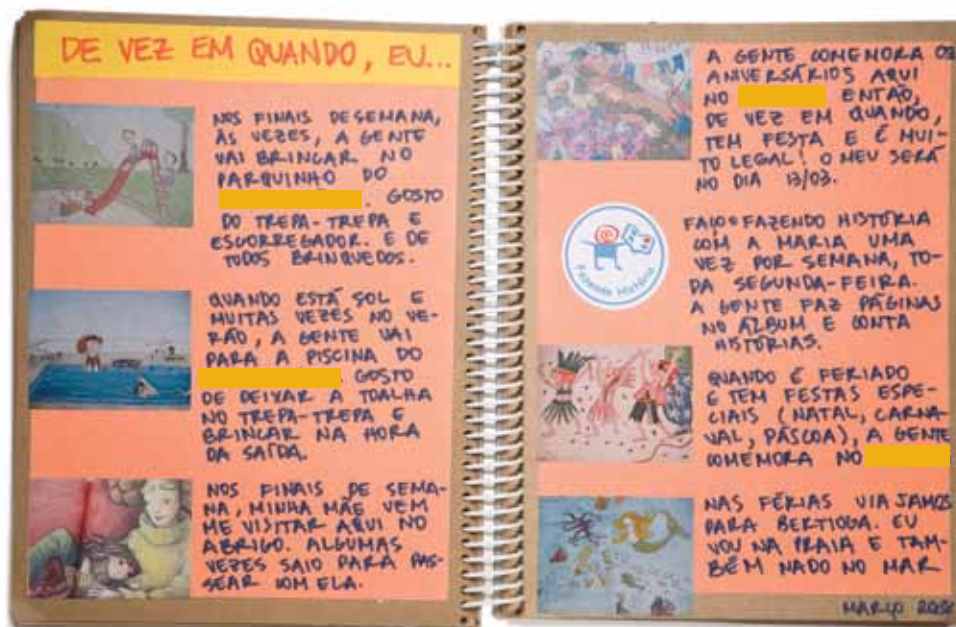 DE VEZ EM QUANDO, EU...
NOS FINAIS DE SEMANA,
ÀS VEZES, A GENTE
VAI BRINCAR NO
PARQUINHO DO
. GOSTO
DO TREPA-TREPA E
ESCORREGADOR. E DE
TODOS BRINQUEDOS.
QUANDO ESTÁ SOL E
MUITAS VEZES NO VE-
RÃO, A GENTE VAI
PARA A PISCINA DO
. GOSTO
DE DEIXAR A TOALHA
NO TREPA-TREPA E
BRINCAR NA HORA
DA SAÍDA.
NOS FINAIS DE SEMA-
NA, MINHA MÃE VEM
ME VISITAR AQUI NO
ABRIGO. ALGUMAS
VEZES SAIO PARA PAS-
SEAR COM ELA.
A GENTE COMEMORA OS
ANIVERSÁRIOS AQUI
NO ENTÃO,
DE VEZ EM QUANDO,
TEM FESTA E É MUI-
TO LEGAL! O MEU SERÁ
NO DIA 13/03.
FAÇO O FAZENDO HISTÓRIA
COM A MARIA UMA
VEZ POR SEMANA, TO-
DA SEGUNDA-FEIRA.
A GENTE FAZ PÁGINAS
NO ÁLBUM E CONTA
HISTÓRIAS.
Fazendo História
QUANDO É FERIADO
E TEM FESTAS ESPE-
CIAIS (NATAL, CARNA-
VAL, PÁSCOA), A GENTE
COMEMORA NO
NAS FÉRIAS VIAJAMOS
PARA BERTIOGA. EU
VOU NA PRAIA E TAM-
BÉM NADO NO MAR
MARÇO